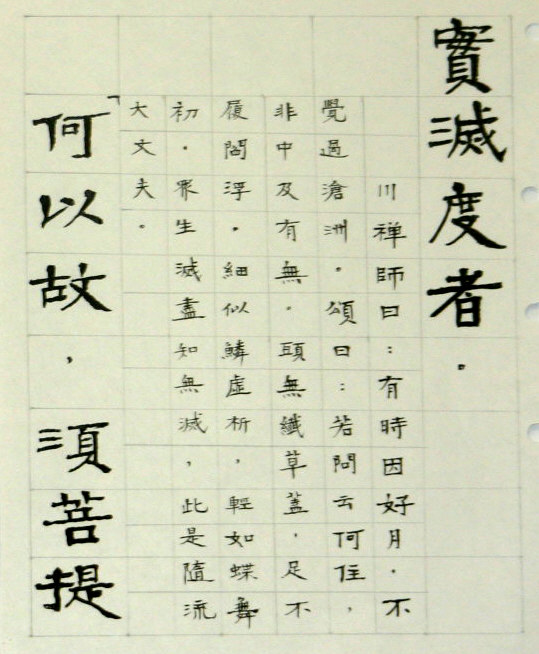 實滅度者。
川禅師曰：有時因好月。不
覺過滄洲。頌曰：若問云何住，
非中及有無。頭無纖草蓋，足不
履閻浮。細似鱗虛析，輕如蝶舞
初。眾生滅盡知無滅，此是隨流
大丈夫。
「何以故，須菩提